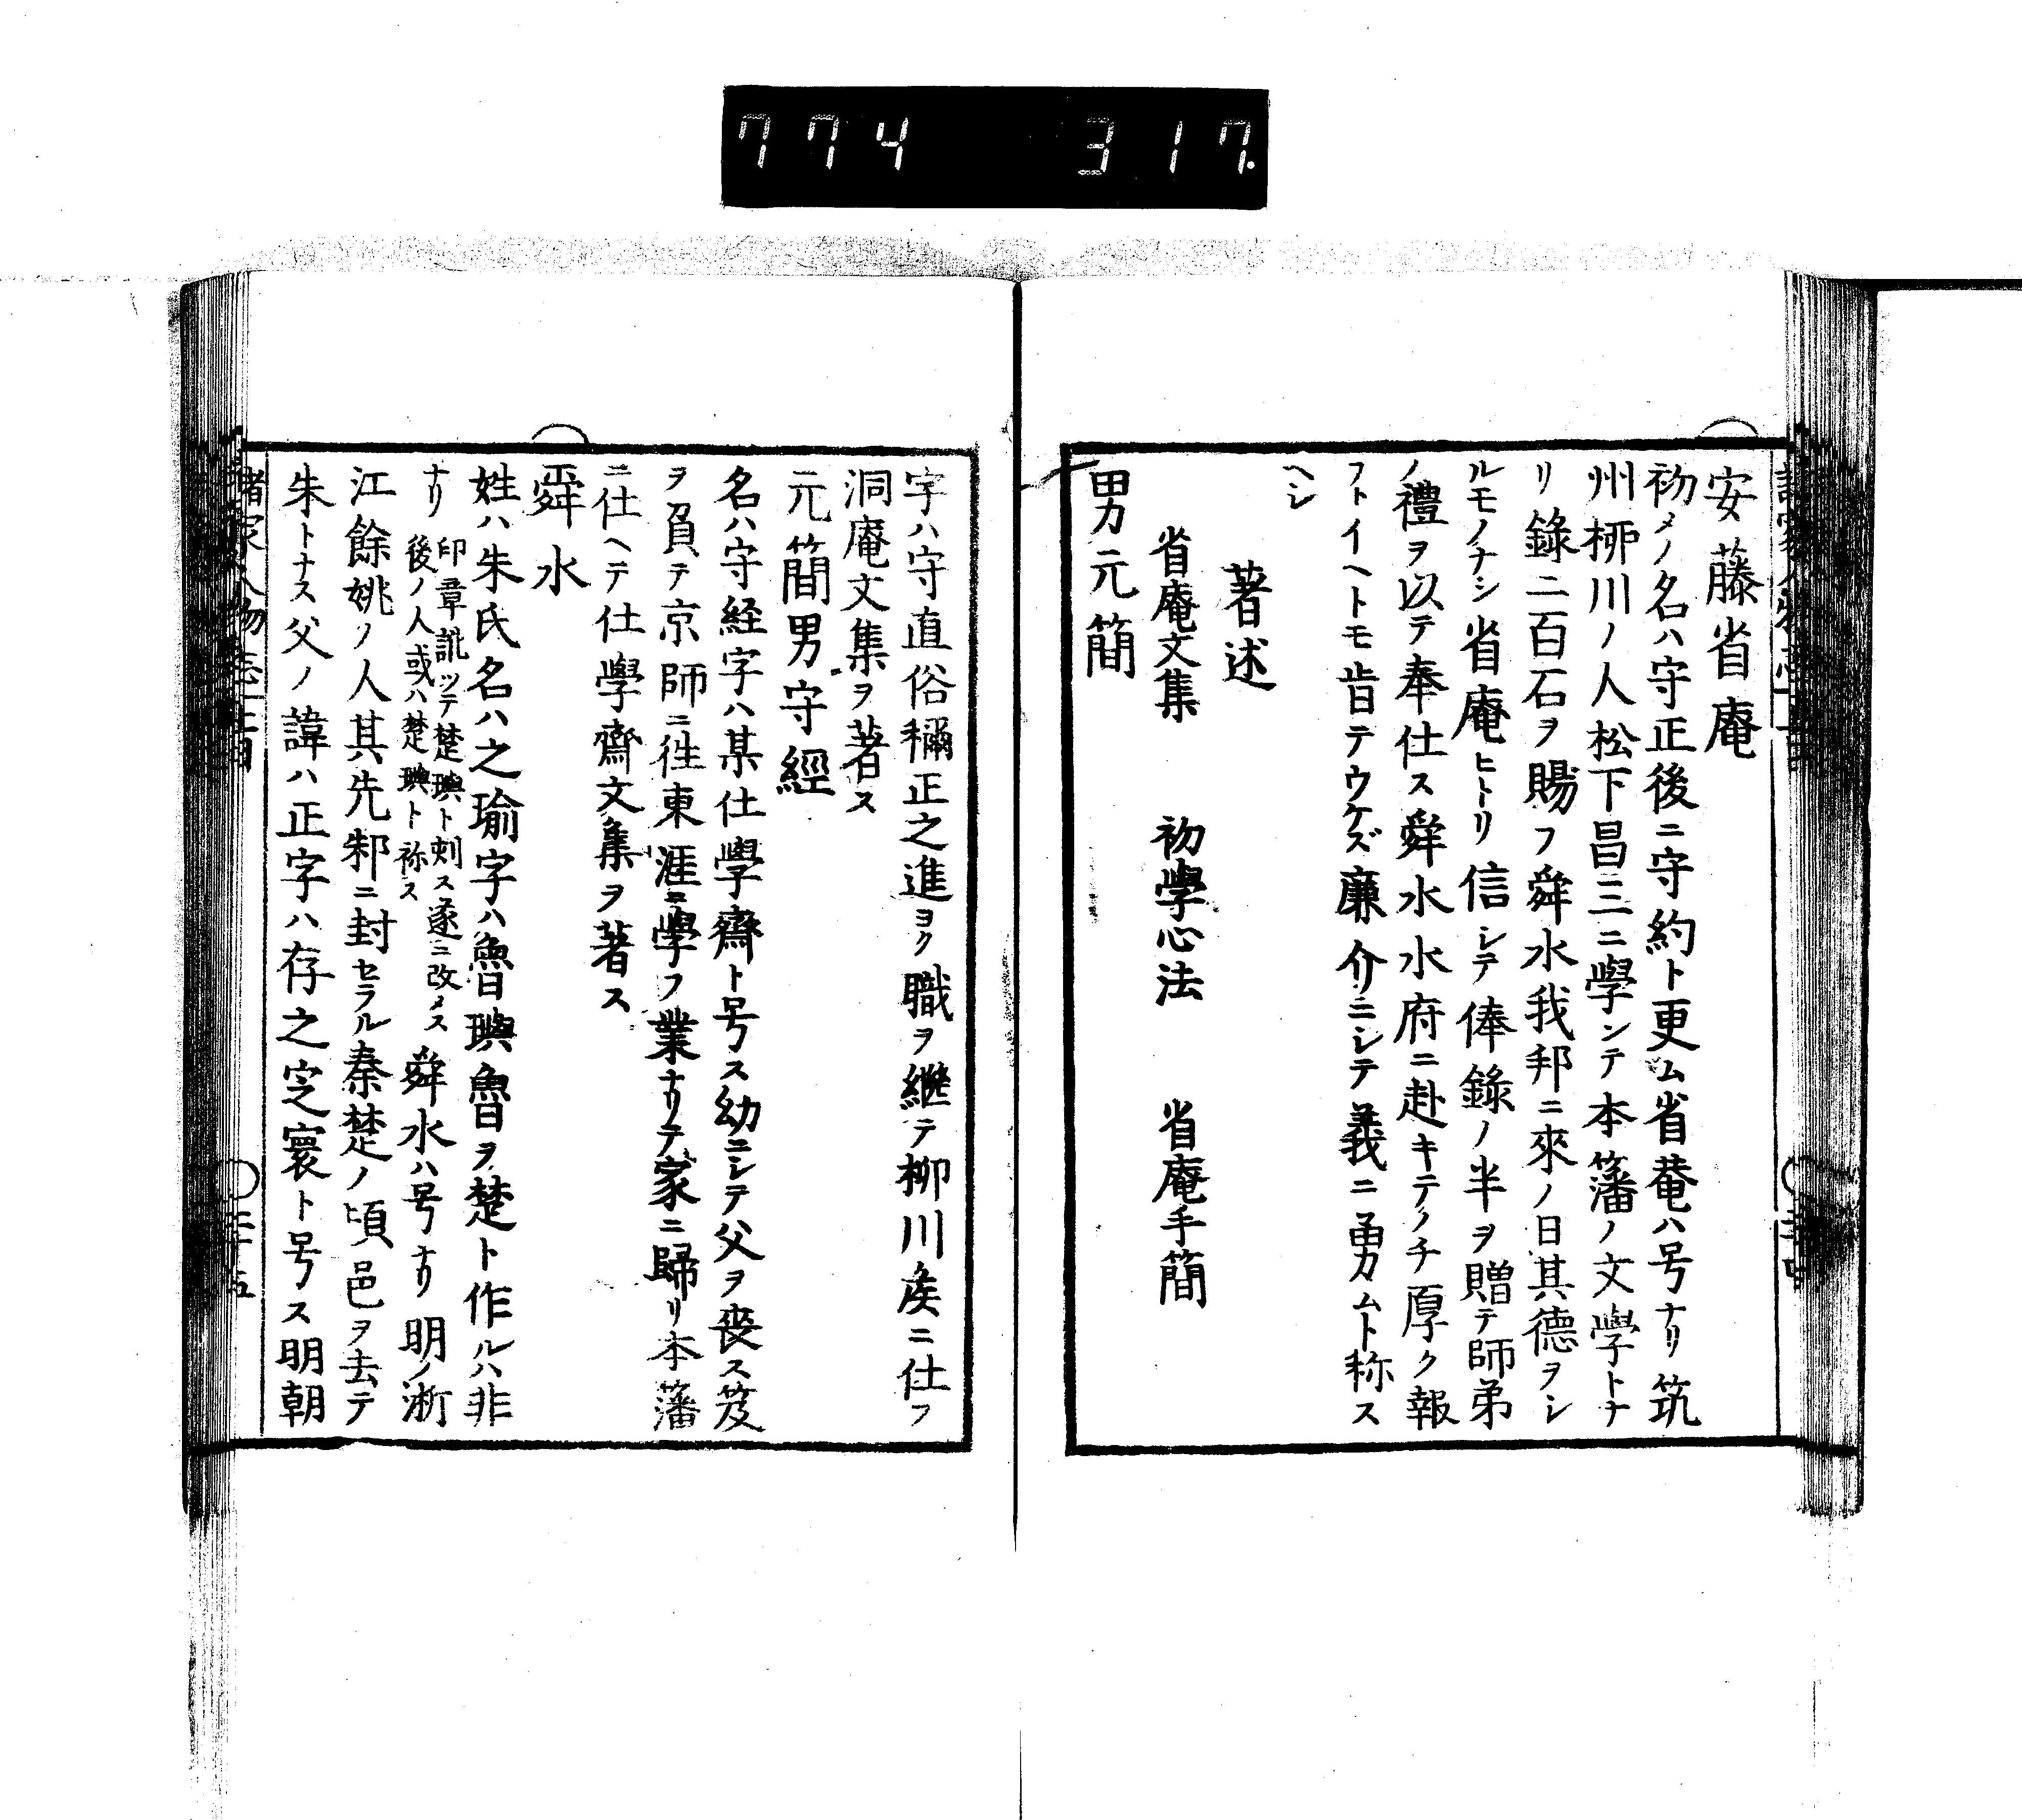 774 317.
安藤省庵
初メノ名ハ守正後ニ守約ト更ム省菴ハ号ナリ筑
州栁川ノ人松下昌三ニ學ンテ本藩ノ文學トナ
リ錄二百石ヲ賜フ舜水我邦ニ來ノ日其德ヲシ
ルモノナシ省庵ヒトリ信シテ俸錄ノ半ヲ贈テ師弟
ノ禮ヲ以テ奉仕ス舜水水府ニ赴キテノチ厚ク報
フトイヘトモ肯テウケズ廉介ニシテ義ニ勇ムト称ス
ヘシ
著述
省庵文集 初學心法 省庵手簡
男元簡
字ハ守直俗稱正之進ヨク職ヲ繼テ柳川矦ニ仕フ
洞庵文集ヲ著ス
元簡男守經
名ハ守経字ハ某仕學齋ト号ス幼ニシテ父ヲ喪ス笈
ヲ負テ京師ニ徃東涯ニ學フ業ナリテ家ニ歸リ本藩
ニ仕ヘテ仕學齋文集ヲ著ス
舜水
姓ハ朱氏名ハ之瑜字ハ魯璵魯ヲ楚ト作ルハ非
ナリ 印章訛ツテ楚璵ト刻ス遂ニ改メス
後ノ人或ハ楚璵ト称ス 舜水ハ号ナリ 明ノ淅
江餘姚ノ人其先邾ニ封セラル秦楚ノ頃邑ヲ去テ
朱トナス父ノ諱ハ正字ハ存之定寰ト号ス明朝
諸家人物志上